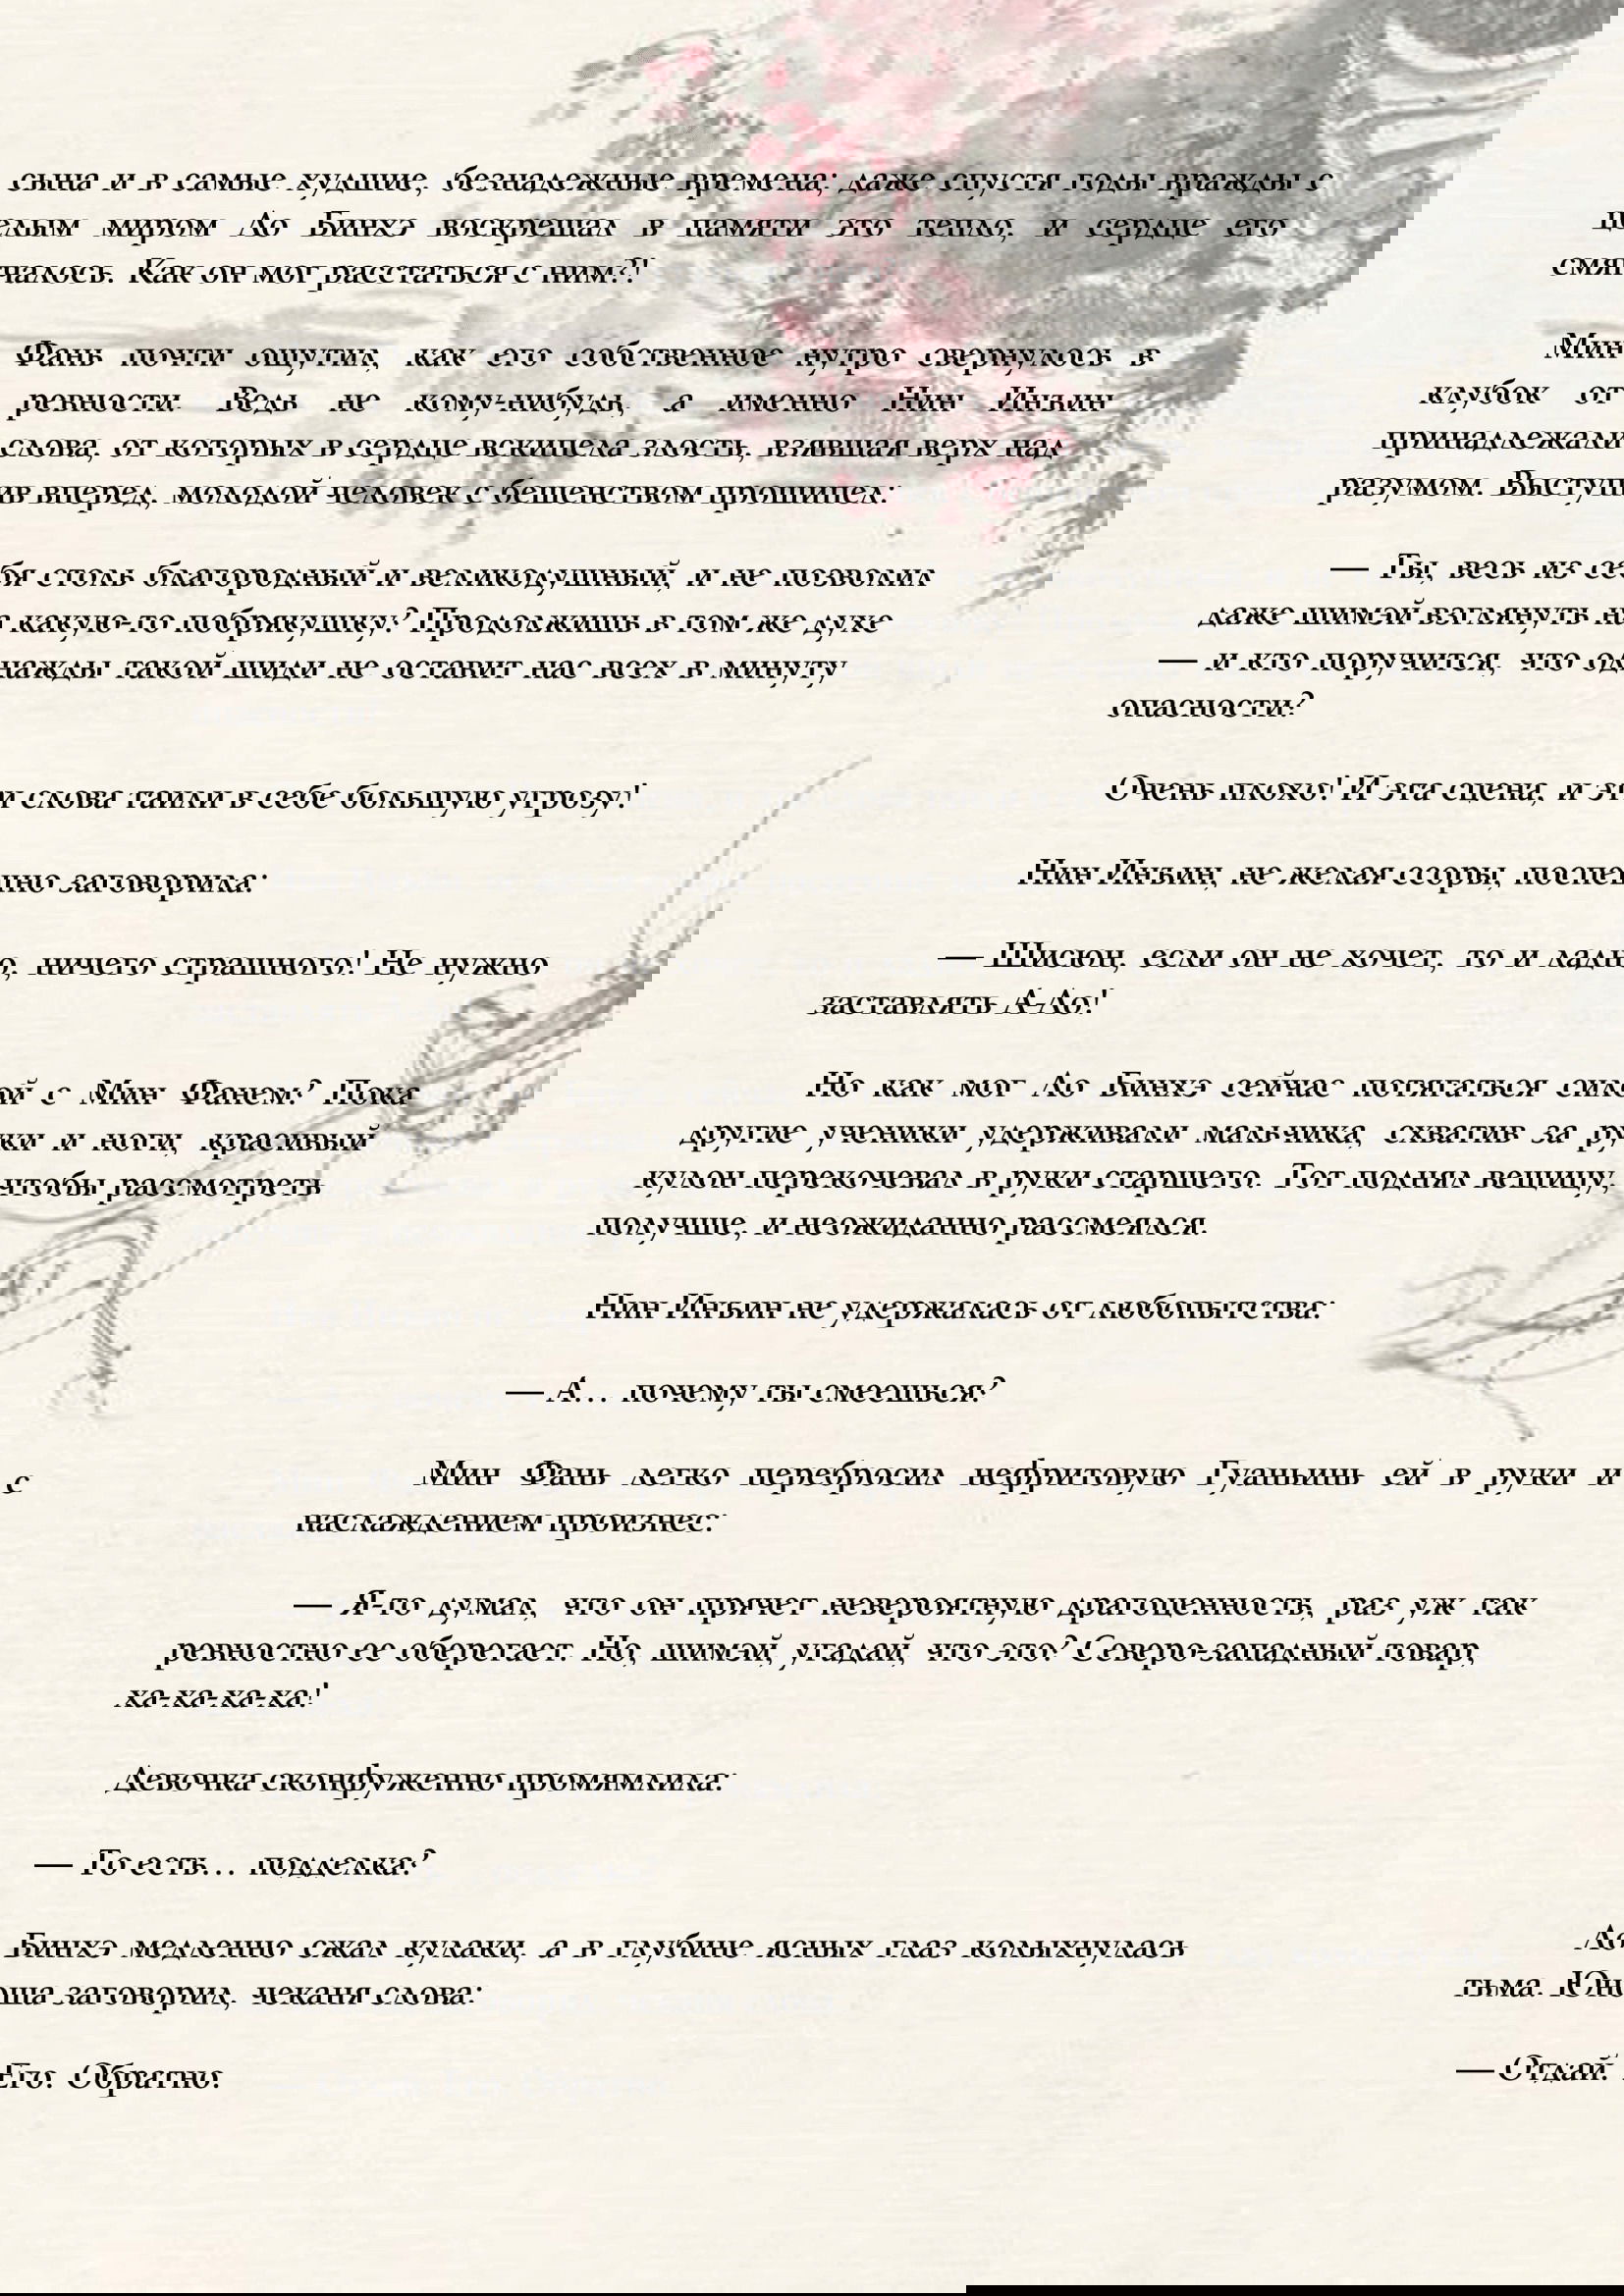 сына и в самые худшие, безнадежные времена; даже спустя годы вражды с
целым миром Ло Бинхэ воскрешал в памяти это тепло, и сердце его
смягчалось. Как он мог расстаться с ним?!
Мин Фань почти ощутил, как его собственное нутро свернулось в
клубок от ревности. Ведь не кому-нибудь, а именно Нин Инъин
принадлежали слова, от которых в сердце вскипела злость, взявшая верх над
разумом. Выступив вперед, молодой человек с бешенством прошипел:
— Ты, весь из себя столь благородный и великодушный, и не позволил
даже шимэй взглянуть на какую-то побрякушку? Продолжишь в том же духе
— и кто поручится, что однажды такой шиди не оставит нас всех в минуту
опасности?
Очень плохо! И эта сцена, и эти слова таили в себе большую угрозу!
Нин Инъин, не желая ссоры, поспешно заговорила:
— Шисюн, если он не хочет, то и ладно, ничего страшного! Не нужно
заставлять А-Ло!
Но как мог Ло Бинхэ сейчас потягаться силой с Мин Фанем? Пока
другие ученики удерживали мальчика, схватив за руки и ноги, красивый
кулон перекочевал в руки старшего. Тот поднял вещицу, чтобы рассмотреть
получше, и неожиданно рассмеялся.
Нин Инъин не удержалась от любопытства:
— А… почему ты смеешься?
Мин Фань легко перебросил нефритовую Гуаньинь ей в руки и с
наслаждением произнес:
— Я-то думал, что он прячет невероятную драгоценность, раз уж так
ревностно ее оберегает. Но, шимэй, угадай, что это? Северо-западный товар,
ха-ха-ха-ха!
Девочка сконфуженно промямлила:
— То есть… подделка?
Ло Бинхэ медленно сжал кулаки, а в глубине ясных глаз колыхнулась
тьма. Юноша заговорил, чеканя слова:
— Отдай. Его. Обратно.